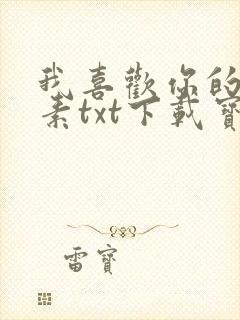 我喜歡你的
素txt下載寶
雷寶